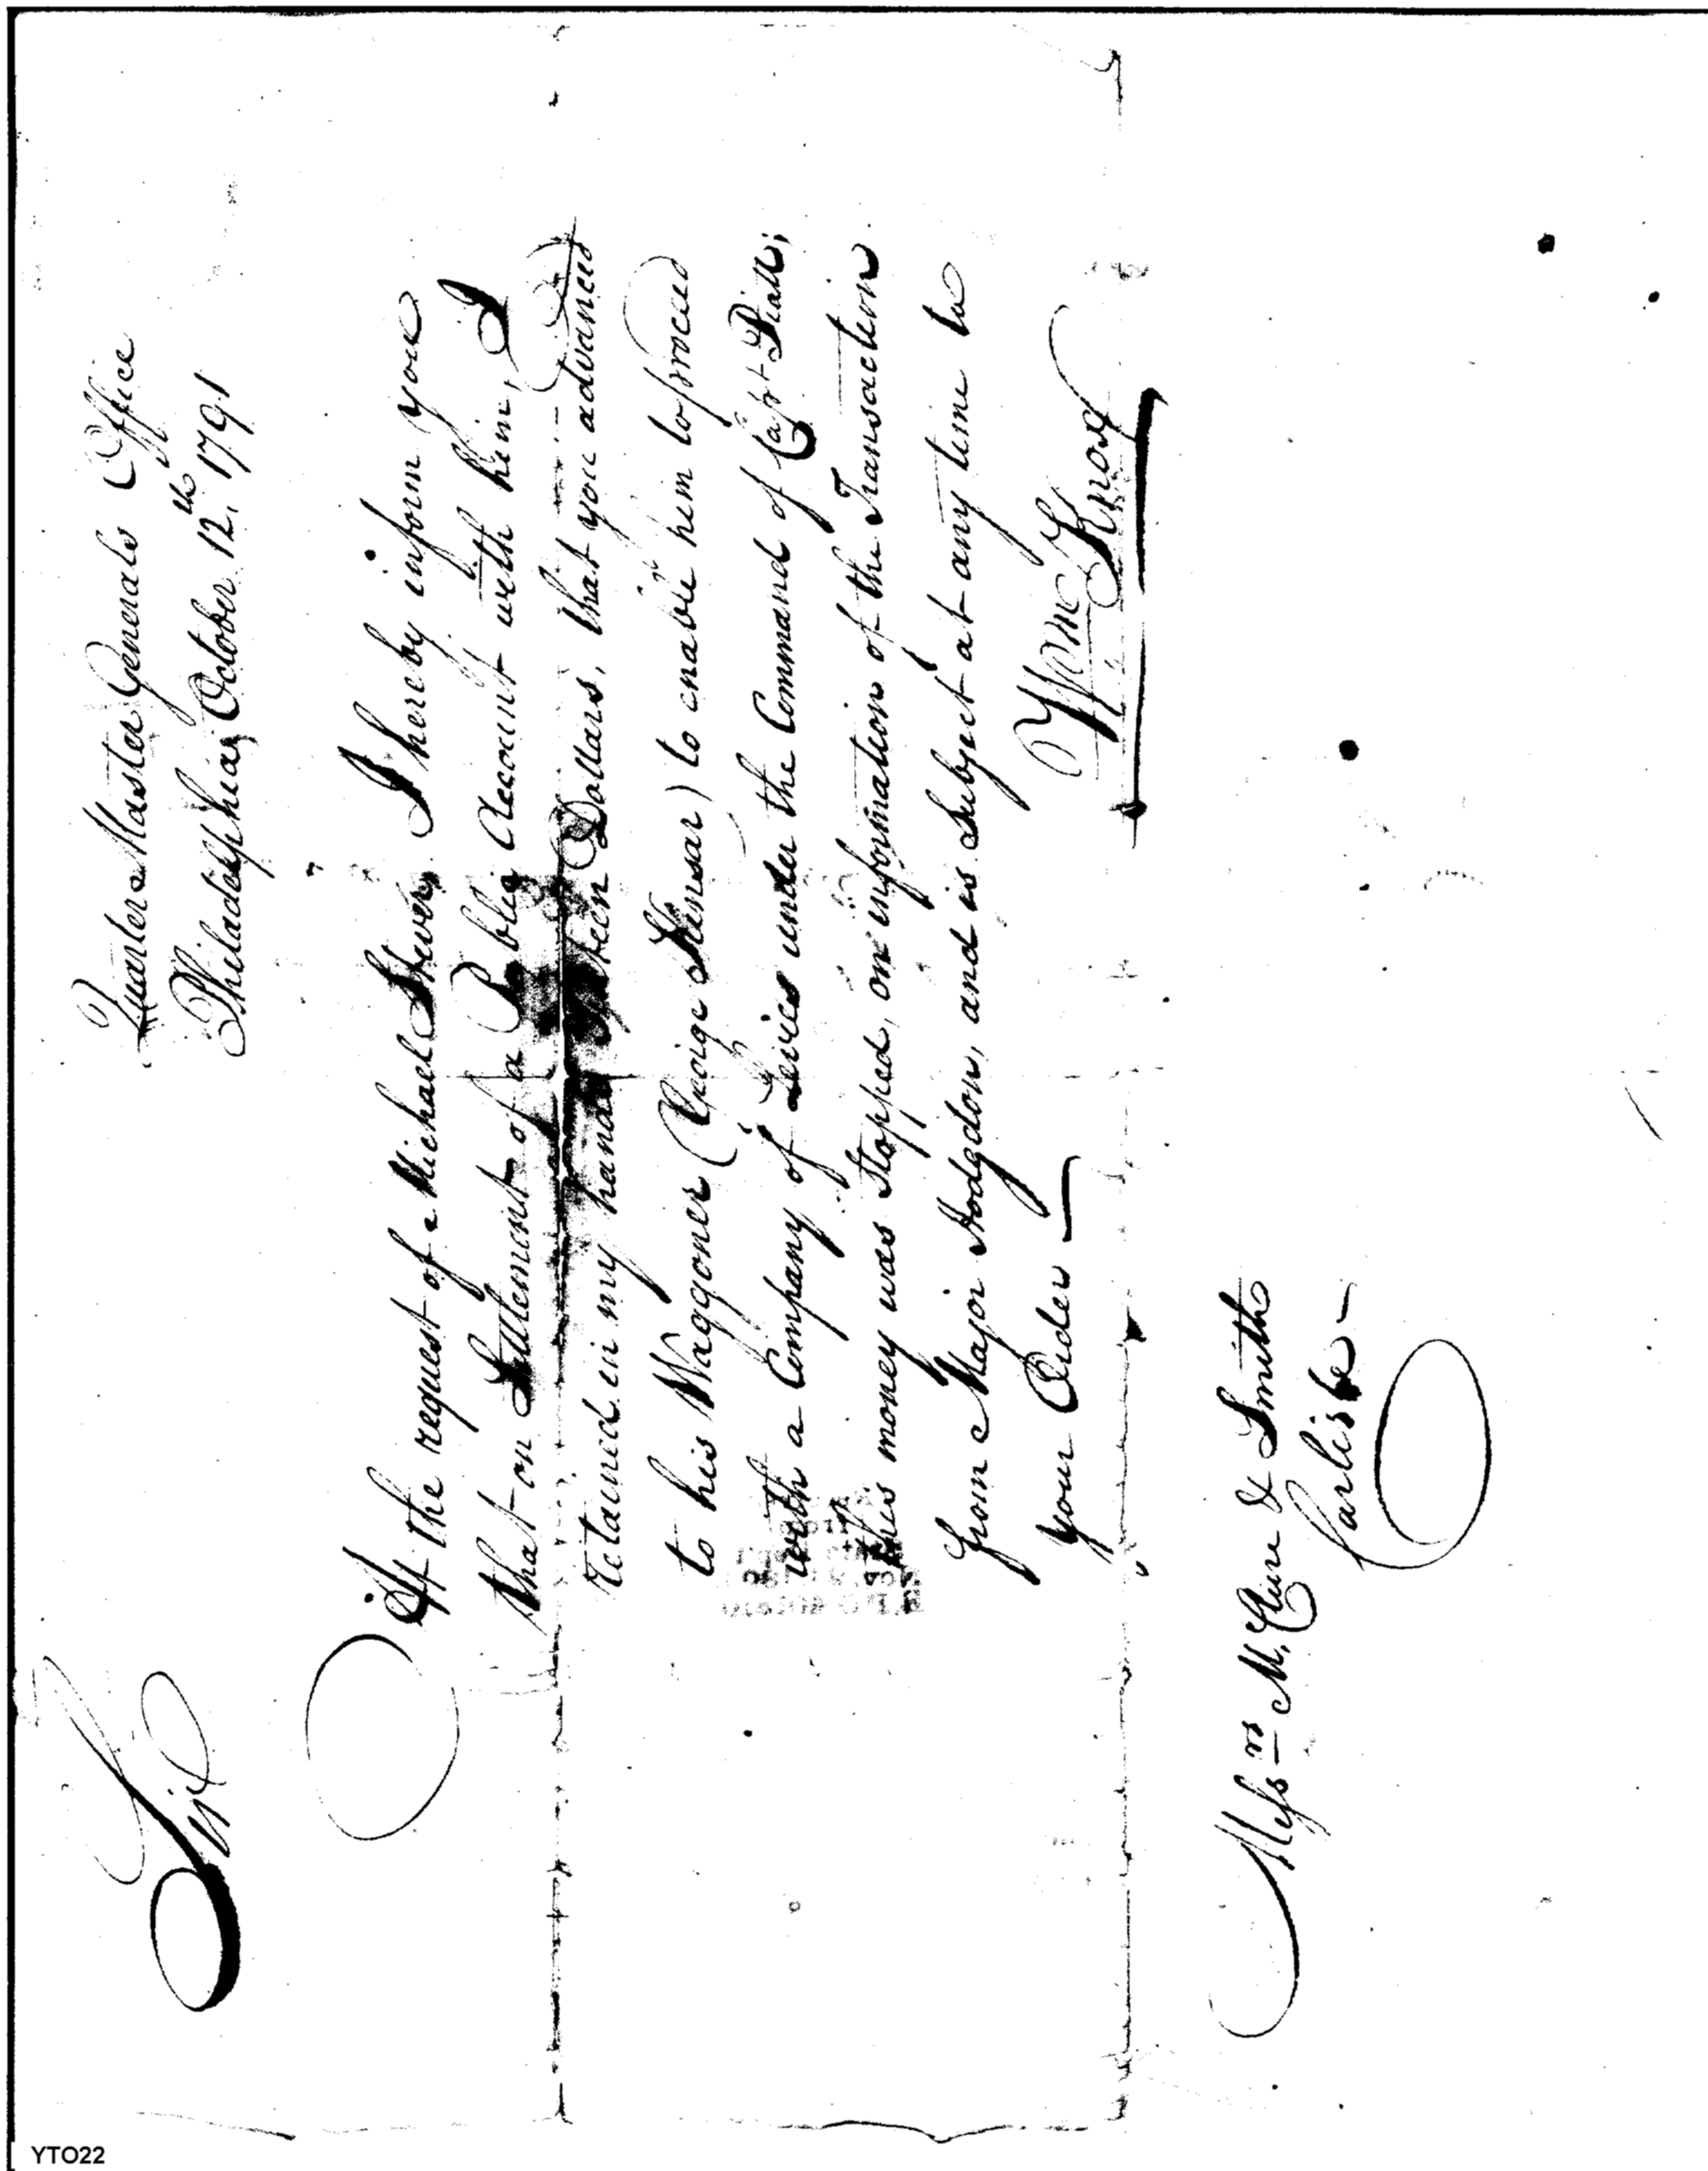 Quarter Master Generals Office
Philadelphia October 12.th 1791
Sir
At the request of Michael Stever, I hereby inform you
that on Settlement of a Public Account with him, I
retained in my hands Dollars, that you advanced
to his Waggoner (George Hensar) to enable him to proceed
with a Company of Levies under the Command of Capt Piatt;
this money was stopped, on information of the Transaction
from Major Hodgdon, and is Subject at any time to
your Order —
Wm Knox
Messrs McClure & Smith
Carlisle —
YTO22